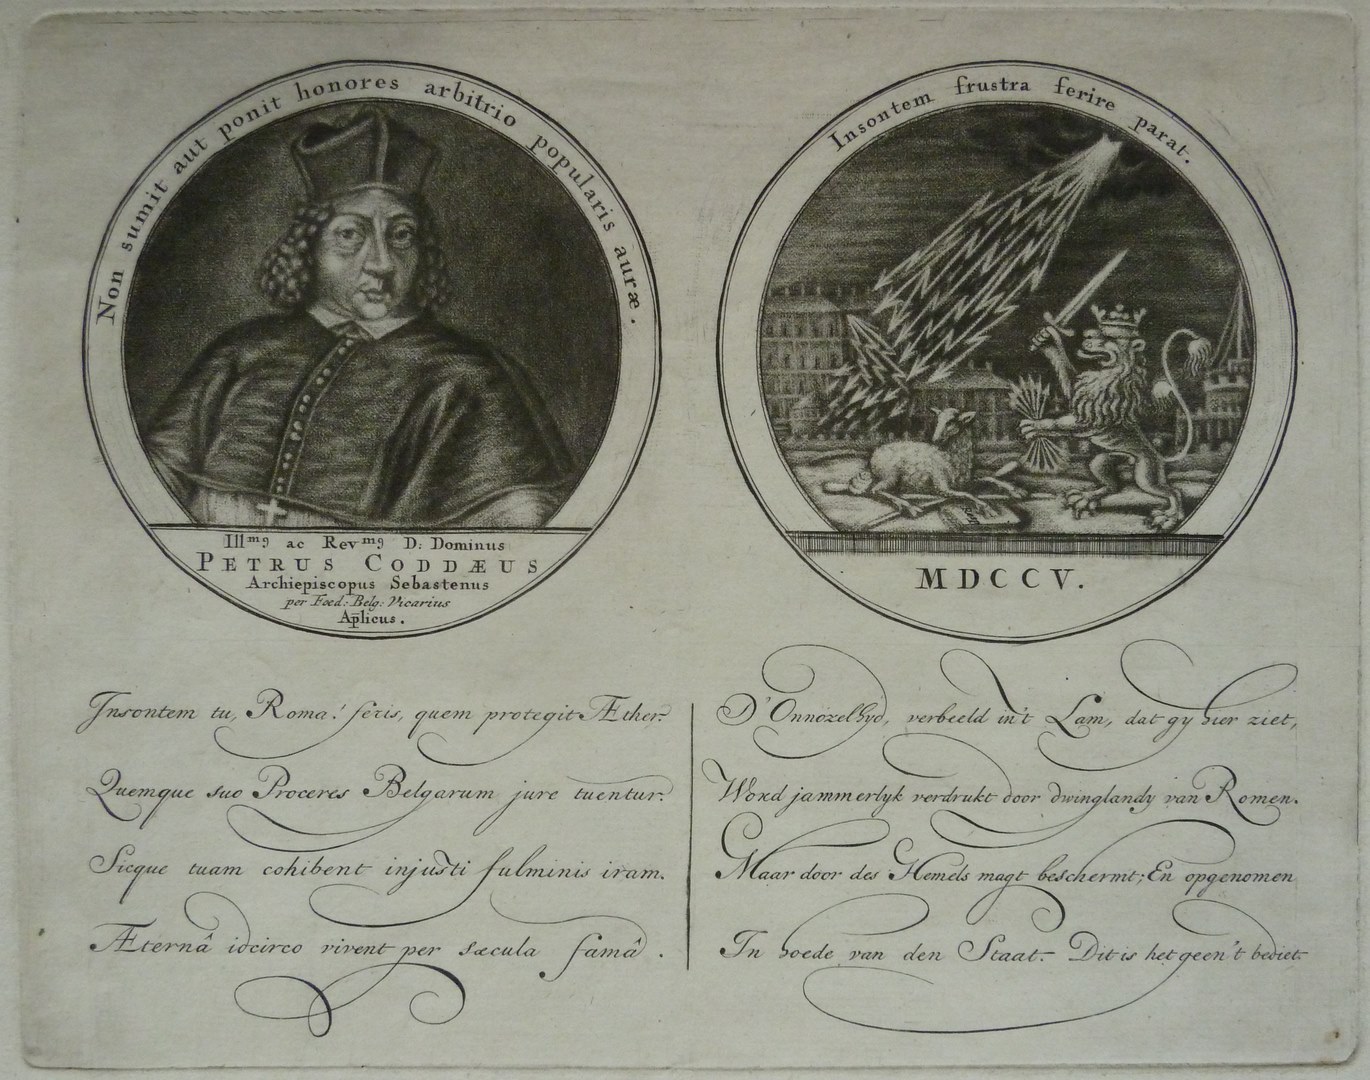 Non sumit aut ponit honores arbitrio popularis auræ.
Ill^m9 ac Rev^m9 D: Dominus
PETRUS CODDÆUS
Archiepiscopus Sebastenus
per Foed: Belg: Vicarius
Ap̄licus.
Insontem frustra ferire parat.
MDCCV.
Insontem tu, Roma! feris, quem protegit Æther.
Quemque suo Proceres Belgarum jure tuentur.
Sicque tuam cohibent injusti fulminis iram.
Æternâ idcirco vivent per sæcula famâ.
D'Onnozelhyd, verbeeld in't Lam, dat gy hier ziet,
Word jammerlyk verdrukt door dwinglandy van Romen.
Maar door des Hemels magt beschermt; En opgenomen
In hoede van den Staat. Dit is het geen't bediet.